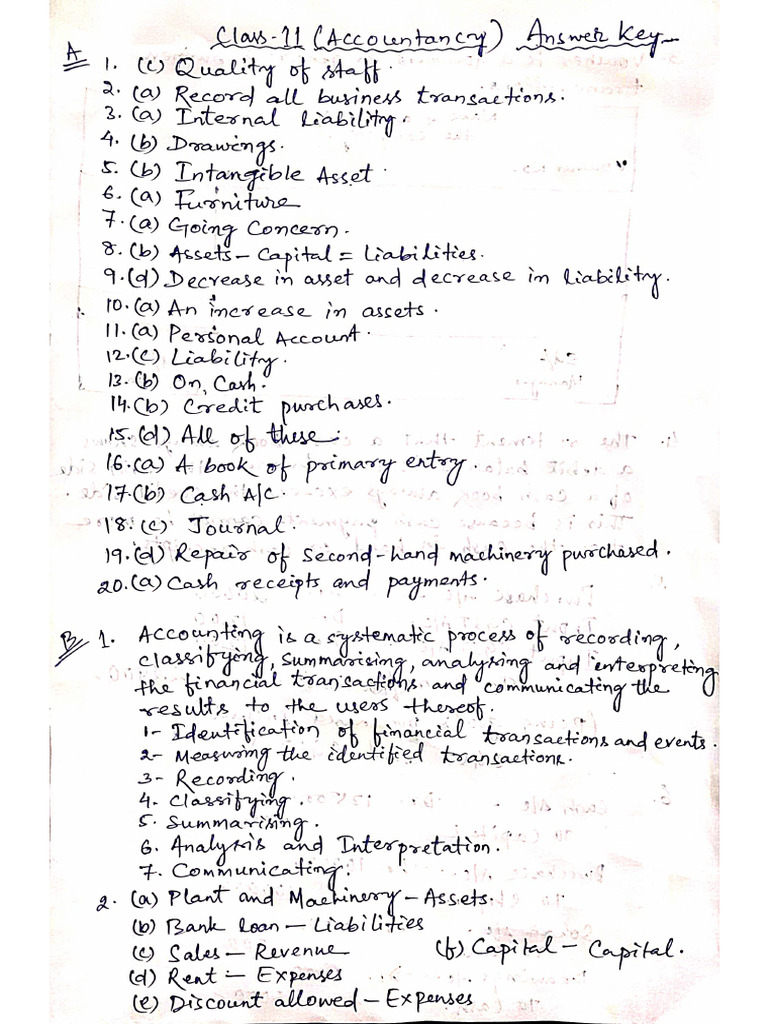 Class-11 (Accountancy) Answer Key
A 1. (c) Quality of staff.
2. (a) Record all business transactions.
3. (a) Internal Liability.
4. (b) Drawings.
5. (b) Intangible Asset.
6. (a) Furniture
7. (a) Going Concern.
8. (b) Assets – Capital = Liabilities.
9. (d) Decrease in asset and decrease in liability.
10. (a) An increase in assets.
11. (a) Personal Account.
12. (c) Liability.
13. (b) On, Cash.
14. (b) Credit purchases.
15. (d) All of these.
16. (a) A book of primary entry.
17. (b) Cash A/c.
18. (c) Journal.
19. (d) Repair of Second-hand machinery purchased.
20. (a) Cash receipts and payments.
B 1. Accounting is a systematic process of recording,
classifying, summarising, analysing and interpreting
the financial transactions and communicating the
results to the users thereof.
1- Identification of financial transactions and events.
2- Measuring the identified transactions.
3- Recording.
4. Classifying.
5. Summarising.
6. Analysis and Interpretation.
7. Communicating.
2. (a) Plant and Machinery – Assets.
(b) Bank Loan – Liabilities
(c) Sales – Revenue (f) Capital – Capital.
(d) Rent – Expenses
(e) Discount allowed – Expenses